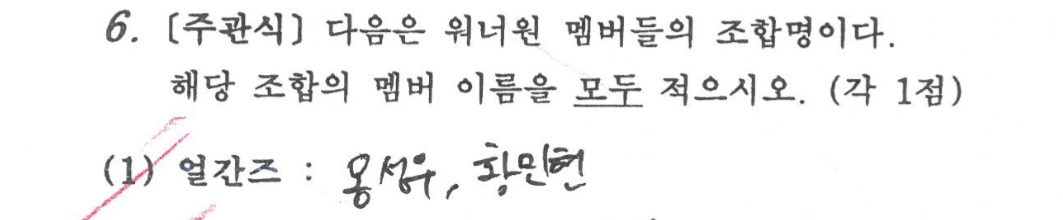 6. [주관식] 다음은 워너원 멤버들의 조합명이다.
해당 조합의 멤버 이름을 모두 적으시오. (각 1점)
(1) 얼간즈 : 옹성우, 황민현